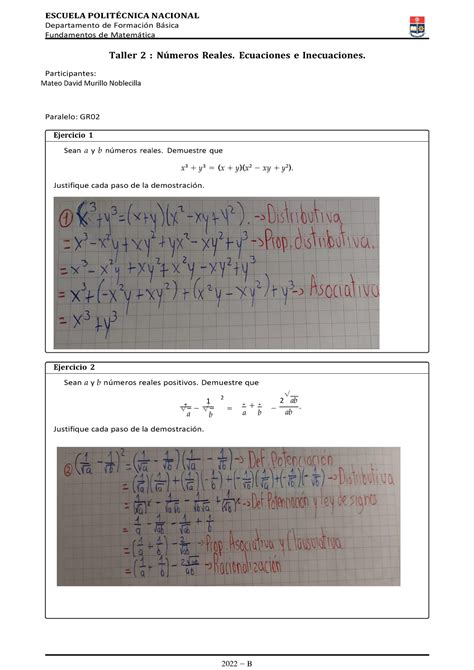 ESCUELA POLITÉCNICA NACIONAL
Departamento de Formación Básica
Fundamentos de Matemática
Taller 2 : Números Reales. Ecuaciones e Inecuaciones.
Participantes:
Mateo David Murillo Noblecilla
Paralelo: GR02
Ejercicio 1
Sean a y b números reales. Demuestre que
x³ + y³ = (x + y)(x² − xy + y²).
Justifique cada paso de la demostración.
① x³+y³=(x+y)(x²-xy+y²). → Distributiva
= x³-x²y+xy²+yx²-xy²+y³ → Prop. distributiva.
= x³-x²y+xy²+x²y-xy²+y³
= x³+(-x²y+xy²)+(x²y-xy²)+y³ → Asociativa
= x³+y³
Ejercicio 2
Sean a y b números reales positivos. Demuestre que
1 2
√a − √b = + − 2 √ab
a b ab.
Justifique cada paso de la demostración.
② (1/√a - 1/√b)² = (1/√a - 1/√b)(1/√a - 1/√b) → Def. Potenciación
= (1/√a)(1/√a)+(1/√a)(-1/√b)+(-1/√b)(1/√a)+(-1/√b)(-1/√b) → Distributiva
= (1/√a)² - 1/√a√b - 1/√a√b + (1/√b)² → Def. Potenciación y ley de signos
= 1/a - 1/√ab - 1/√ab + 1/b
= (1/a + 1/b) - 2/√ab → Prop. Asociativa y Clausulativa
= (1/a + 1/b) - 2√ab/ab → Racionalización
2022 − B